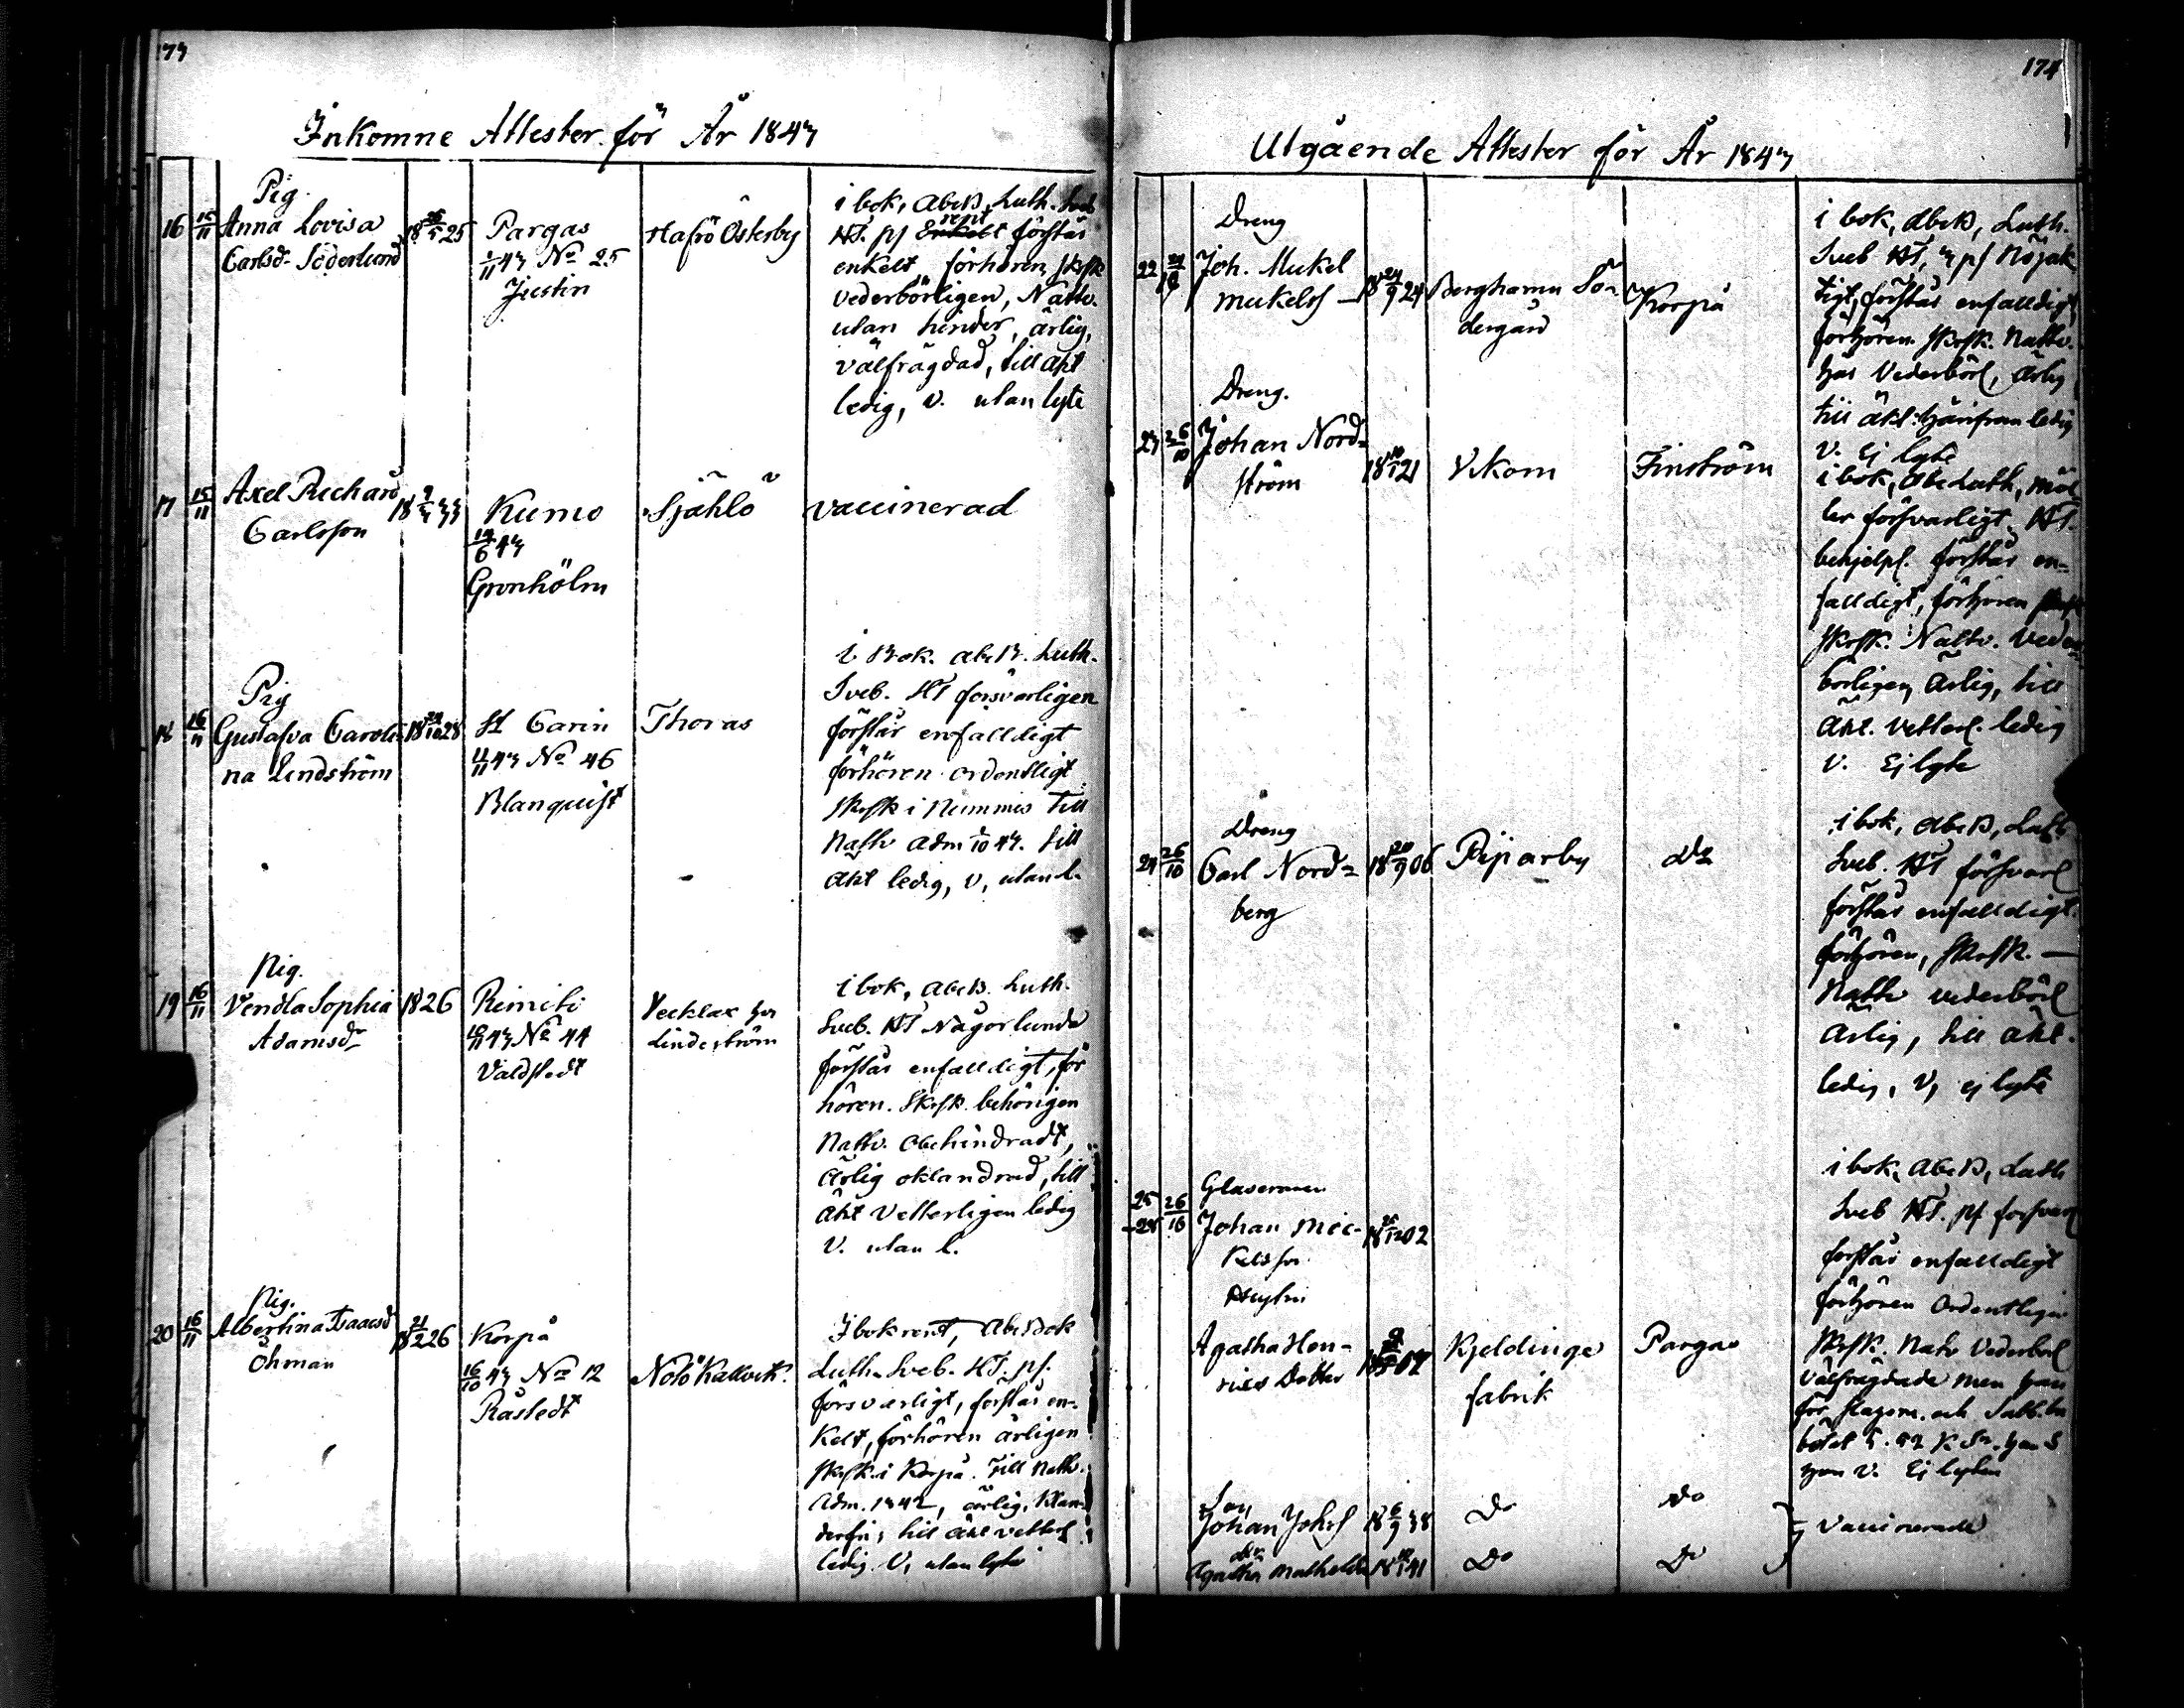 Inkomne Attester för År 1843
16 15/11 Pig. Anna Lovisa
Carlsdr Söderlund
18 25/5 25
Pargas
43 No 25
Justin
Österby
i bok, Abc B, Luth. Sveb
HT. ps rent förstår
enkelt, förhören, skrsk
vederbörligen, Nattv.
utan hinder, ärlig,
välfrägdad, till äkt
ledig, v. utan lyte
17 15/11 Axel Richard
Carlsson
Kumo
14/6 43
Grönholm
Själö
vaccinerad
16/11 Pig
Gustafva Caroli-
na Lindström
18 29/10 28
St Carin
11/11 43 No 46
Blanquist
Thoras
i Bok. Abc B. Luth.
Sveb. HT försvarligen
förstår enfalldigt
förhören ordentligt
skrsk i Nummis Till
Nattv adm 1/10 43. till
äkt ledig, v, utan l.
19 16/11 Pig.
Vendla Sophia
Adamsdr
1826
Rimito
43 No 44
Valdstedt
Lindeström
i bok, Abc B. Luth.
Sveb. HT Någorlunda
förstår enfalldigt, för
hören. skrsk. behörigen
Nattv. obehindradt,
ärlig oklandrad, till
äkt vetterligen ledig
V. utan l.
20 16/11 Pig.
Albertina Isaacsd
Öhman
18 21/2 26
Korpå
16/10 43 No 12
Råstedt
Nötö Kallvik.
I bok rent, Abc Bok
Luth. Sveb. HT. ps.
försvarligt, förstår en-
kelt, förhören årligen
skrsk. i Korpå. Till Nattv.
Adm. 1842, ärlig, klan-
derfri, till äkt vetterl
ledig. V, utan lyte
174
Utgående Attester för År 1843
22 Dreng
Joh. Mickel
Mickelss
18 24/9 24
Berghamn Sö-
dergård
Korpå
i bok, Abc B, Luth.
Sveb HT, ps Nöjak
tigt, förstår enfalldigt
förhören. skrsk. Nattv.
här Vederbörl, ärlig
till äkt. härifrån ledig
V. Ej lyte
23 26/10 Dreng.
Johan Nord-
ström
Finström
i bok, Abc Luth,
ler försvarligt. HT.
behjelpl. förstår en-
falldigt, förhören
skrsk. Nattv. Veder-
börligen, Ärlig, till
Äkt. vetterl. ledig
V. Ej lyte
24 26/10 Dreng
Carl Nord-
berg
18 20/9 06
Do
i bok, Abc B, Luth
Sveb. HT försvarl
förstår enfalldigt.
förhören, skrsk. —
Nattv vederbörl
Ärlig, till äkt.
ledig, V, ej lyte
25 26/10 Johan Mic-
kelsson
Agatha Hen-
rics Dotter
Kjeldinge
fabrik
Pargas
i bok, Abc B, Luth
Sveb HT. ps försvarl
förstår enfalldigt
förhören Ordentligen
skrsk. Nattv Vederbörl
välfrägdade men han
för slagsm. och Sabb.br
bötat
hon v. Ej lyten
Son
Johan Johss 18 6/9 38
Do
Do
Vaccinerade
Agatha Mathilda
Do
Do